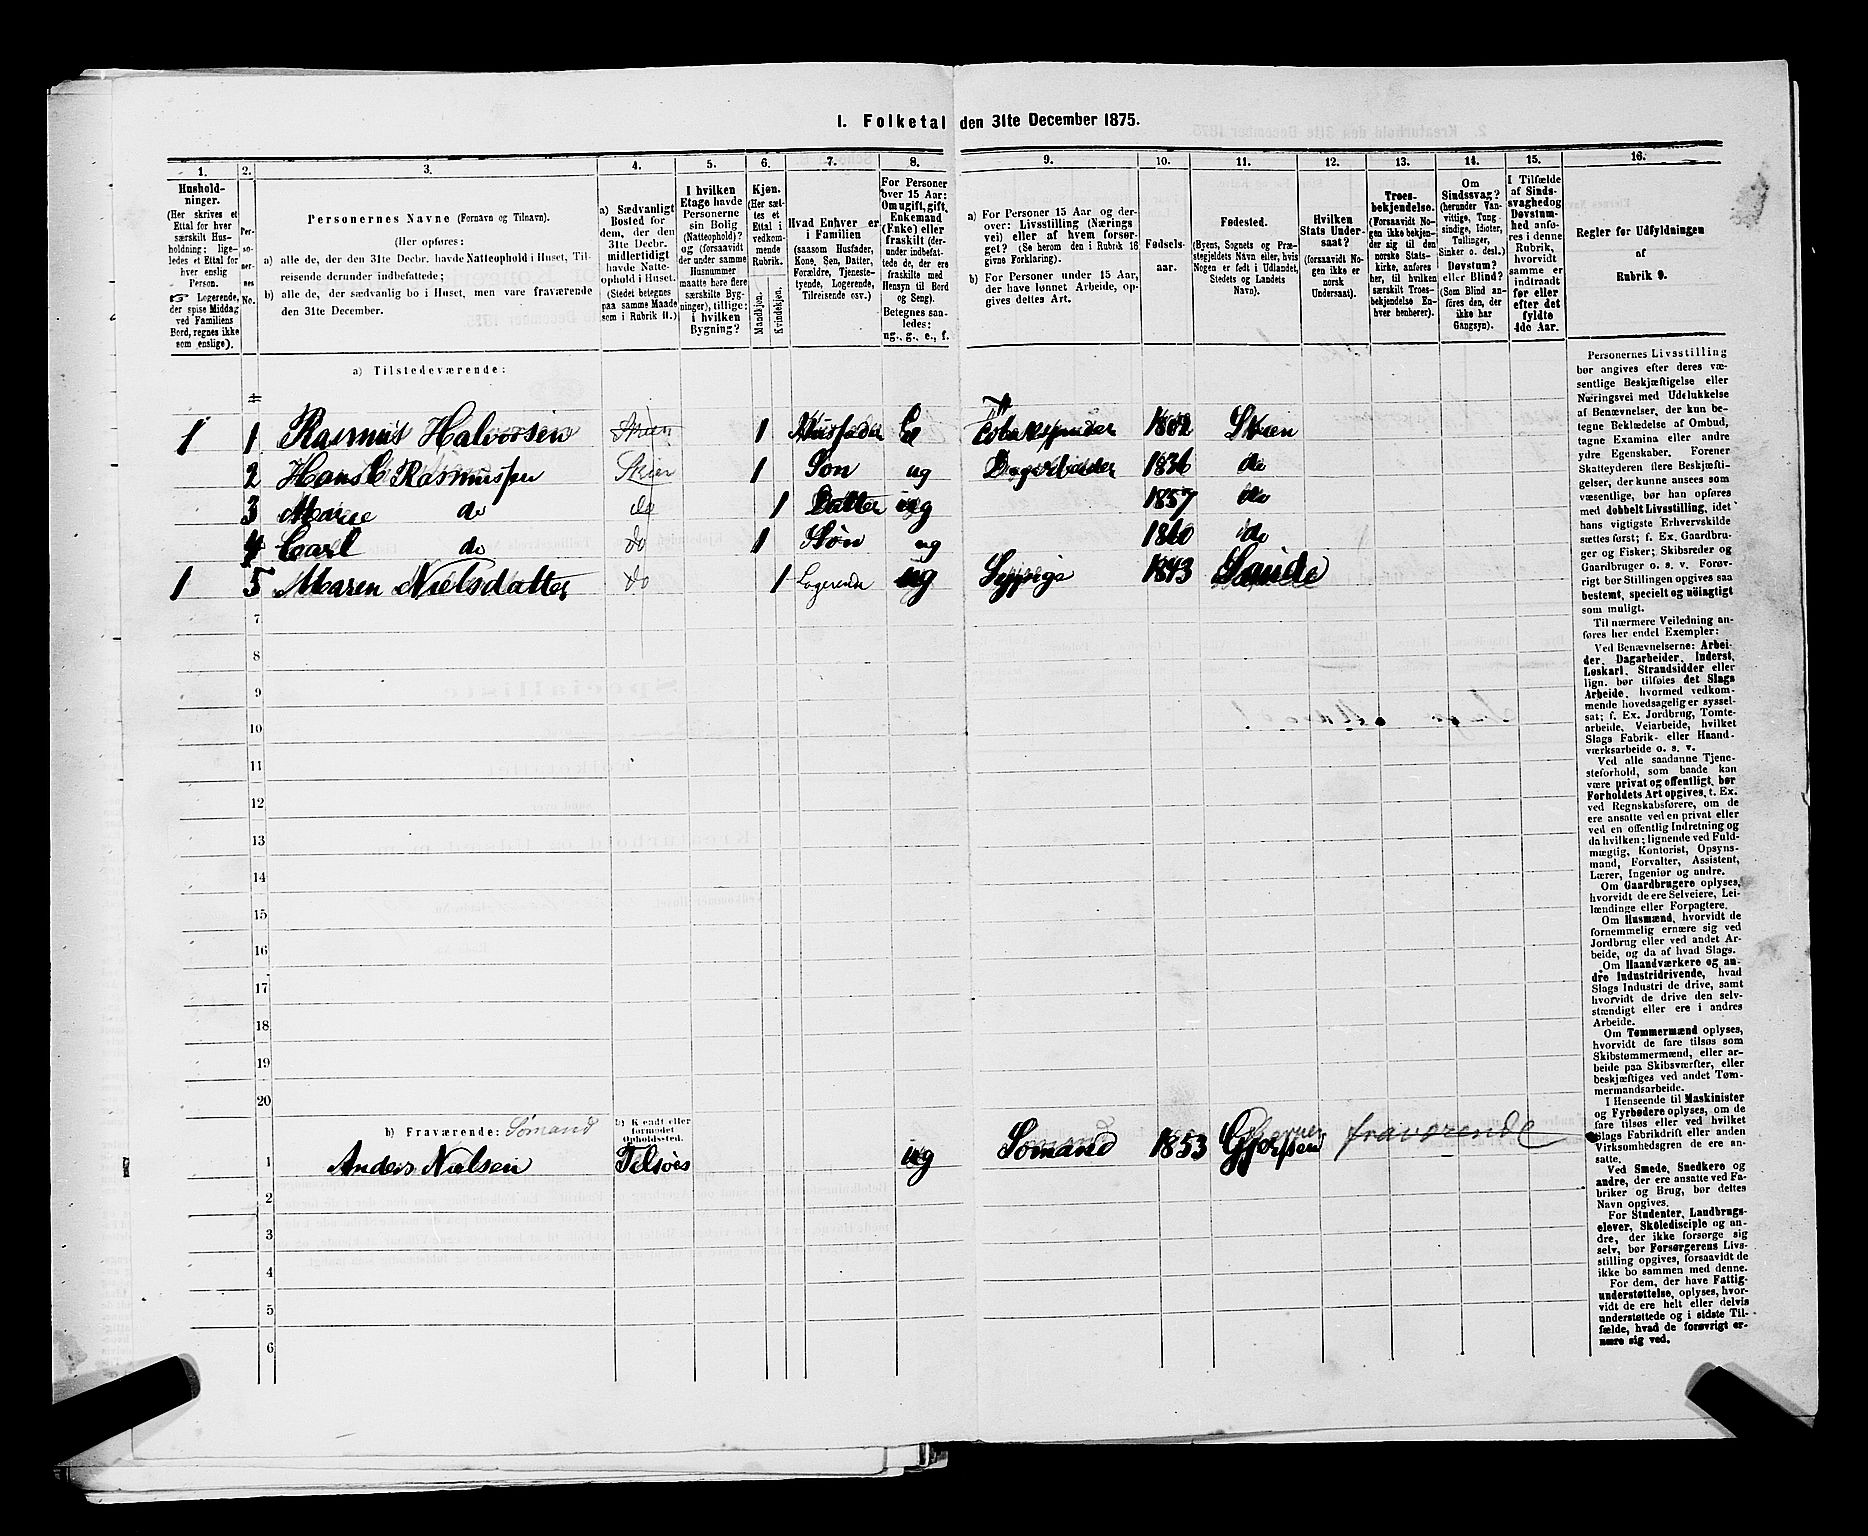 1. Folketal den 31te December 1875.
1. 2. 3. 4. 5. 6. 7. 8. 9. 10. 11. 12. 13. 14. 15. 16.
Hushold-
ninger.
(Her skrives et
Ettal for hver
særskilt Hus-
holdning; lige-
ledes et Ettal for
hver enslig
Person.
☞ Logerende,
der spise Middag
ved Familiens
Bord, regnes ikke
som enslige).
Per-
so-
ner-
nes
No.
Personernes Navne (Fornavn og Tilnavn).
(Her opføres:
a) alle de, der den 31te Decbr. havde Natteophold i Huset, Til-
reisende derunder indbefattede;
b) alle de, der sædvanlig bo i Huset, men vare fraværende
den 31te December.
a) Sædvanligt
Bosted for
dem, der den
31te Decbr.
midlertidigt
havde Natte-
ophold i Huset.
(Stedet betegnes
paa samme Maade
som i Rubrik 11.)
I hvilken
Etage havde
Personerne
sin Bolig
(Natteophold)?
og (forsaavidt
der under samme
Husnummer
maatte høre flere
særskilte Byg-
ninger), tillige:
i hvilken
Bygning?
Kjøn.
(Her sæt-
tes et
Ettal i
vedkom-
mende
Rubrik.
Mandkjøn.
Kvindekjøn.
Hvad Enhver er
i Familien
(saasom Husfader,
Kone, Søn, Datter,
Forældre, Tjeneste-
tyende, Logerende,
Tilreisende osv.)
For Personer
over 15 Aar:
Om ugift, gift,
Enkemand
(Enke) eller
fraskilt (der-
under indbefat-
tede de, der ere
fraskilte med
Hensyn til Bord
og Seng).
Betegnes saa-
ledes:
ug., g., e., f.
a) For Personer 15 Aar og der-
over: Livsstilling (Nærings
vei) eller af hvem forsør-
get? (Se herom den i Rubrik 16
givne Forklaring).
b) For Personer under 15 Aar,
der have lønnet Arbeide, op-
gives dettes Art.
Fødsels-
aar.
Fødested.
(Byens, Sognets og Præ-
stegjeldets Navn eller, hvis
Nogen er født i Udlandet,
Stedets og Landets
Navn).
Hvilken
Stats Under-
saat?
(forsaavidt No-
gen ikke er
norsk
Undersaat).
Troes-
bekjendelse.
(Forsaavidt No-
gen ikke bekjen-
der sig til den
norske Stats-
kirke, anføres
her, til hvilken
særskilt Troes-
bekjendelse En-
hver henhører).
Om
Sindssvag?
(herunder Van-
vittige, Tung
sindige, Idioter,
Tullinger,
Sinker o. desl.)
Døvstum?
eller Blind?
(Som Blind an-
føres den, der
ikke har
Gangsyn).
I Tilfælde
af Sinds-
svaghed og
Døvstum-
hed anfø-
res i denne
Rubrik,
hvorvidt
samme er
indtraadt
før eller
efter det
fyldte
4de Aar.
Regler for Udfyldningen
af
Rubrik 9.
a) Tilstedeværende:
1 1 Rasmus Halvorsen Skien 1 Husfader E 1802 Skien
2 Hans C Rasmussen Skien 1 Søn ug Dagarbeider 1836 do
3 Marie do do 1 Datter ug 1857 do
4 Carl do do 1 Søn ug 1860 do
1 5 Maren Nielsdatter do 1 Logerende ug 1843 Sande
7
8
9
10
11
12
13
14
15
16
17
18
19
20
b) Fraværende: Sømand b) Kjendt eller
formodet
Opholdssted.
1 Anders Nielsen Tilsøes ug Sømand 1853 fraværende
2
3
4
5
6
Personernes Livsstilling
bør angives efter deres væ-
sentlige Beskjæftigelse eller
Næringsvei med Udelukkelse
af Benævnelser, der kun be-
tegne Beklædelse af Ombud,
tagne Examina eller andre
ydre Egenskaber. Forener
Skatteyderen flere Beskjæfti-
gelser, der kunne ansees som
væsentlige, bør han opføres
med dobbelt Livsstilling, idet
hans vigtigste Erhvervskilde
sættes først; f. Ex. Gaardbru-
ger og Fisker; Skibsreder og
Gaardbruger o. s. v. Forøv-
rigt bør Stillingen opgives saa
bestemt, specielt og nøiagtigt
som muligt.
Til nærmere Veiledning an-
føres her endel Exempler:
Ved Benævnelserne: Arbei-
der, Dagarbeider, Inderst,
Løskarl, Strandsidder eller
lign. bør tilføies det Slags
Arbeide, hvormed vedkom-
mende hovedsagelig er syssel-
sat; f. Ex. Jordbrug, Tomte-
arbeide, Veiarbeide, hvilket
Slags Fabrik- eller Haand-
værksarbeide o. s. v.
Ved alle saadanne Tjene-
steforhold, som baade kan
være privat og offentligt, bør
Forholdets Art opgives, t. Ex.
ved Regnskabsførere, om de
ere ansatte ved en privat eller
ved en offentlig Indretning og
da hvilken; lignende ved Fuld-
mægtig, Kontorist, Opsyns-
mand, Forvalter, Assistent,
Lærer, Ingeniør og andre.
Om Gaardbrugere oplyses,
hvorvidt de ere Selveiere, Lei-
lændinge eller Forpagtere.
Om Husmænd, hvorvidt de
fornemmelig ernære sig ved
Jordbrug eller ved andet Ar-
beide, og da af hvad Slags.
Om Haandværkere og an-
dre Industridrivende, hvad
Slags Industri de drive, samt
hvorvidt de drive den selv-
stændigt eller ere i andres
Arbeide.
Om Tømmermænd oplyses,
hvorvidt de fare tilsøs som
Skibstømmermænd, eller ar-
beide paa Skibsværfter, eller
beskjæftiges ved andet Tøm-
mermandsarbeide.
I Henseende til Maskinister
og Fyrbødere oplyses, om de
fare tilsøs eller ved hvilket
Slags Fabrikdrift eller anden
Virksomhedsgren de ere an-
satte.
Ved Smede, Snedkere og
andre, der ere ansatte ved Fa-
briker og Brug, bør dettes
Navn opgives.
For Studenter, Landbrugs-
elever, Skoledisciple og an-
dre, der ikke forsørge sig
selv, bør Forsørgerens Livs-
stilling opgives, forsaavidt de
ikke bo sammen med denne.
For dem, der have Fattig-
understøttelse, oplyses, hvor-
vidt de ere helt eller delvis
understøttede og i sidste Til-
fælde, hvad de forøvrigt er-
nære sig ved.